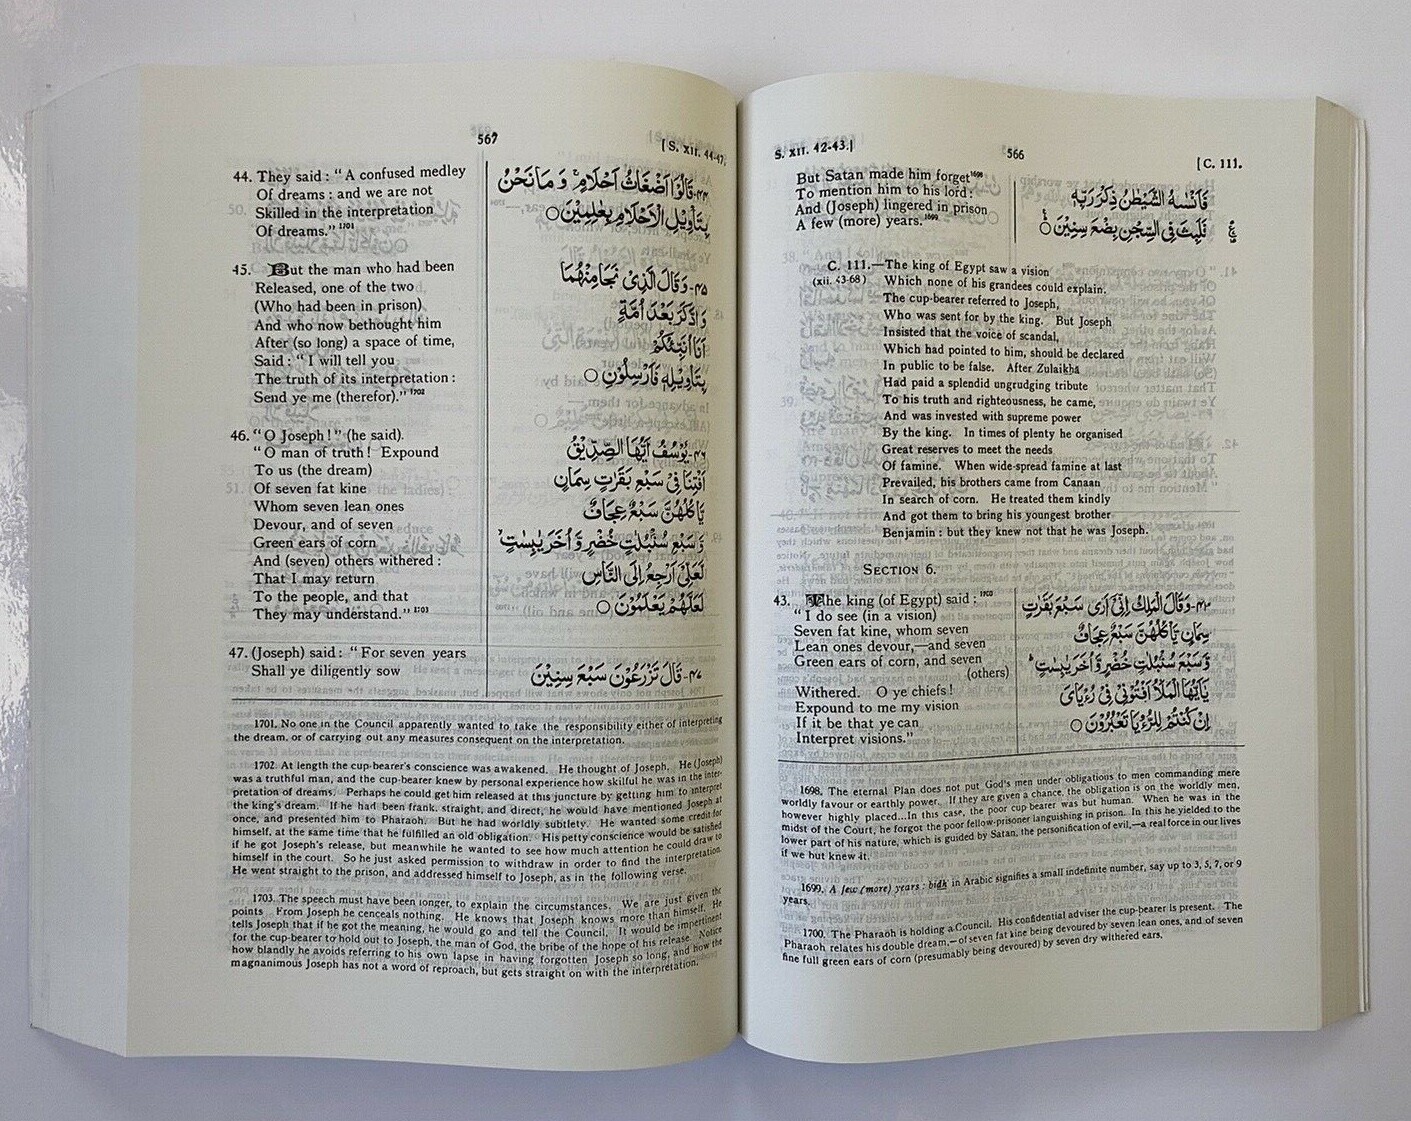 S. XII. 42-43.]
566
[C. 111.
But Satan made him forget¹⁶⁹⁸
To mention him to his lord:
And (Joseph) lingered in prison
A few (more) years.¹⁶⁹⁹
فَاَنْسٰىهُ الشَّيْطٰنُ ذِكْرَ رَبِّهٖ
فَلَبِثَ فِى السِّجْنِ بِضْعَ سِنِيْنَ ○
C. 111.—The king of Egypt saw a vision
(xii. 43-68) Which none of his grandees could explain.
The cup-bearer referred to Joseph,
Who was sent for by the king. But Joseph
Insisted that the voice of scandal,
Which had pointed to him, should be declared
In public to be false. After Zulaikha
Had paid a splendid ungrudging tribute
To his truth and righteousness, he came,
And was invested with supreme power
By the king. In times of plenty he organised
Great reserves to meet the needs
Of famine. When wide-spread famine at last
Prevailed, his brothers came from Canaan
In search of corn. He treated them kindly
And got them to bring his youngest brother
Benjamin : but they knew not that he was Joseph.
SECTION 6.
43. The king (of Egypt) said : ¹⁷⁰⁰
“ I do see (in a vision)
Seven fat kine, whom seven
Lean ones devour,—and seven
Green ears of corn, and seven
(others)
Withered. O ye chiefs !
Expound to me my vision
If it be that ye can
Interpret visions.”
۴۳- وَقَالَ الْمَلِكُ اِنِّىْٓ اَرٰى سَبْعَ بَقَرٰتٍ
سِمَانٍ يَّاْكُلُهُنَّ سَبْعٌ عِجَافٌ
وَّسَبْعَ سُنْۢبُلٰتٍ خُضْرٍ وَّاُخَرَ يٰبِسٰتٍ
يٰٓاَيُّهَا الْمَلَاُ اَفْتُوْنِىْ فِىْ رُءْيَاىَ
اِنْ كُنْتُمْ لِلرُّءْيَا تَعْبُرُوْنَ ○
1698. The eternal Plan does not put God's men under obligations to men commanding mere
worldly favour or earthly power. If they are given a chance, the obligation is on the worldly men,
however highly placed...In this case, the poor cup-bearer was but human. When he was in the
midst of the Court, he forgot the poor fellow-prisoner languishing in prison. In this he yielded to the
lower part of his nature, which is guided by Satan, the personification of evil,—a real force in our lives
if we but knew it.
1699. A few (more) years : bidh in Arabic signifies a small indefinite number, say up to 3, 5, 7, or 9
years.
1700. The Pharaoh is holding a Council. His confidential adviser the cup-bearer is present. The
Pharaoh relates his double dream,—of seven fat kine being devoured by seven lean ones, and of seven
fine full green ears of corn (presumably being devoured) by seven dry withered ears.
567
[S. XII. 44-47.
44. They said : “ A confused medley
Of dreams : and we are not
Skilled in the interpretation
Of dreams.” ¹⁷⁰¹
۴۴- قَالُوْٓا اَضْغَاثُ اَحْلَامٍ وَمَا نَحْنُ
بِتَاْوِيْلِ الْاَحْلَامِ بِعٰلِمِيْنَ ○
45. But the man who had been
Released, one of the two
(Who had been in prison)
And who now bethought him
After (so long) a space of time,
Said : “ I will tell you
The truth of its interpretation :
Send ye me (therefor).” ¹⁷⁰²
۴۵- وَقَالَ الَّذِىْ نَجَا مِنْهُمَا
وَادَّكَرَ بَعْدَ اُمَّةٍ
اَنَا اُنَبِّئُكُمْ
بِتَاْوِيْلِهٖ فَاَرْسِلُوْنِ ○
46. “ O Joseph ! ” (he said).
“ O man of truth ! Expound
To us (the dream)
Of seven fat kine
Whom seven lean ones
Devour, and of seven
Green ears of corn
And (seven) others withered :
That I may return
To the people, and that
They may understand.” ¹⁷⁰³
۴۶- يُوْسُفُ اَيُّهَا الصِّدِّيْقُ
اَفْتِنَا فِىْ سَبْعِ بَقَرٰتٍ سِمَانٍ
يَّاْكُلُهُنَّ سَبْعٌ عِجَافٌ
وَّسَبْعِ سُنْۢبُلٰتٍ خُضْرٍ وَّاُخَرَ يٰبِسٰتٍ
لَعَلِّىْٓ اَرْجِعُ اِلَى النَّاسِ
لَعَلَّهُمْ يَعْلَمُوْنَ ○
47. (Joseph) said : “ For seven years
Shall ye diligently sow
۴۷- قَالَ تَزْرَعُوْنَ سَبْعَ سِنِيْنَ
1701. No one in the Council apparently wanted to take the responsibility either of interpreting
the dream, or of carrying out any measures consequent on the interpretation.
1702. At length the cup-bearer's conscience was awakened. He thought of Joseph. He (Joseph)
was a truthful man, and the cup-bearer knew by personal experience how skilful he was in the inter-
pretation of dreams. Perhaps he could get him released at this juncture by getting him to interpret
the king's dream. If he had been frank, straight, and direct, he would have mentioned Joseph at
once, and presented him to Pharaoh. But he had worldly subtlety. He wanted some credit for
himself, at the same time that he fulfilled an old obligation. His petty conscience would be satisfied
if he got Joseph's release, but meanwhile he wanted to see how much attention he could draw to
himself in the court. So he just asked permission to withdraw in order to find the interpretation.
He went straight to the prison, and addressed himself to Joseph, as in the following verse.
1703. The speech must have been longer, to explain the circumstances. We are just given the
points From Joseph he cenceals nothing. He knows that Joseph knows more than himself. He
tells Joseph that if he got the meaning, he would go and tell the Council. It would be impertinent
for the cup-bearer to hold out to Joseph, the man of God, the bribe of the hope of his release. Notice
how blandly he avoids referring to his own lapse in having forgotten Joseph so long, and how the
magnanimous Joseph has not a word of reproach, but gets straight on with the interpretation.